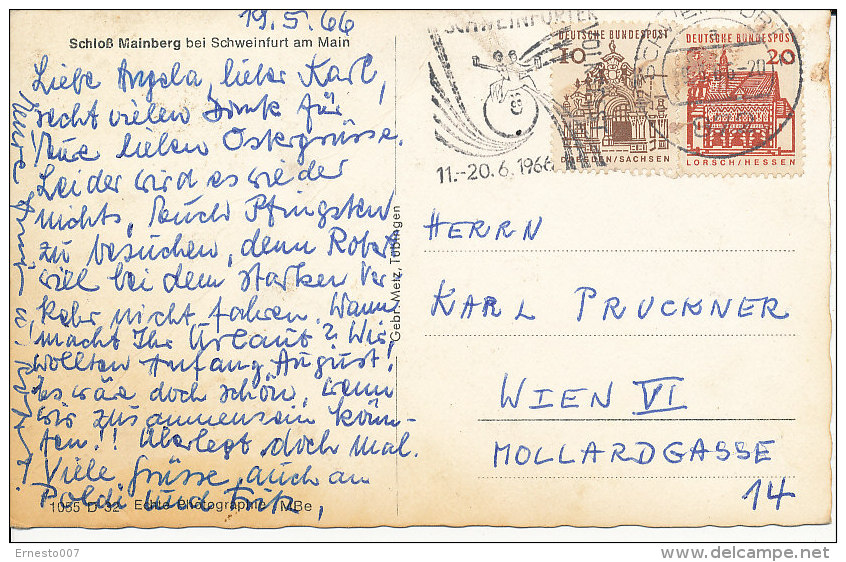 19.5.66
Schloß Mainberg bei Schweinfurt am Main
Liebe Angela, lieber Karl,
recht vielen Dank für
Eure lieben Ostergrüsse.
Leider wird es wieder
nichts, Euch Pfingsten
zu besuchen, denn Robert
will bei dem starken Ver-
kehr nicht fahren. Wann
macht Ihr Urlaub? Wir
wollten Anfang August.
Es wäre doch schön, wenn
wir zusammensein könn-
ten!! Überlegt doch mal.
Viele Grüsse, auch an
Poldi und Erik,
Eure
1055 D 32 Echte Photographie MBe
Gebr. Metz, Tübingen
SCHWEINFURTER
11.-20.6.1966
DEUTSCHE BUNDESPOST
10
DRESDEN/SACHSEN
DEUTSCHE BUNDESPOST
20
LORSCH/HESSEN
HERRN
KARL PRUCKNER
WIEN VI
MOLLARDGASSE
14
Ernesto007
delcampe.net